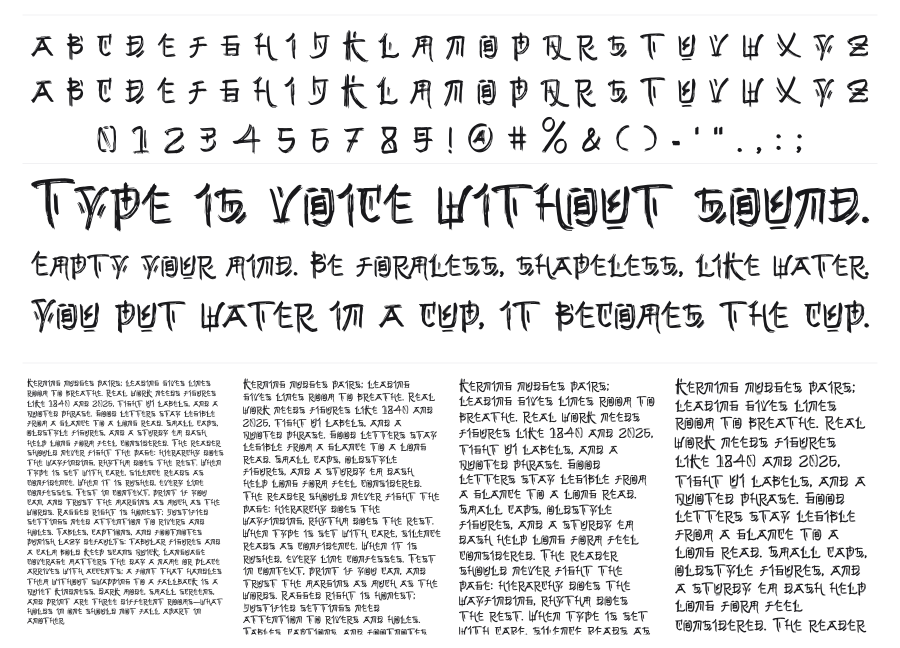 A B C D E F G H I J K L M N O P Q R S T U V W X Y Z
A B C D E F G H I J K L M N O P Q R S T U V W X Y Z
0 1 2 3 4 5 6 7 8 9 ! @ # % & ( ) - ' " . , : ;
Type is voice without sound.
Empty your mind. Be formless, shapeless, like water.
You put water in a cup, it becomes the cup.
Kerning nudges pairs; leading gives lines
room to breathe. Real work needs figures
like 1840 and 2025, tight UI labels, and a
quoted phrase. Good letters stay legible
from a glance to a long read. Small caps,
oldstyle figures, and a sturdy em dash
help long form feel considered. The reader
should never fight the page: hierarchy does
the wayfinding, rhythm does the rest. When
type is set with care, silence reads as
confidence. When it is rushed, every line
confesses. Test in context, print if you
can, and trust the margins as much as the
words. Ragged right is honest; justified
settings need attention to rivers and
holes. Tables, captions, and footnotes
punish lazy defaults: tabular figures and
a calm bold keep scans quick. Language
coverage matters the day a name or place
arrives with accents: a font that handles
them without swapping to a fallback is a
quiet kindness. Dark mode, small screens,
and print are three different rooms—what
holds in one should not fall apart in
another.
Kerning nudges pairs; leading
gives lines room to breathe. Real
work needs figures like 1840 and
2025, tight UI labels, and a
quoted phrase. Good letters stay
legible from a glance to a long
read. Small caps, oldstyle
figures, and a sturdy em dash
help long form feel considered.
The reader should never fight the
page: hierarchy does the
wayfinding, rhythm does the rest.
When type is set with care, silence
reads as confidence. When it is
rushed, every line confesses. Test
in context, print if you can, and
trust the margins as much as the
words. Ragged right is honest;
justified settings need
attention to rivers and holes.
Tables, captions, and footnotes
Kerning nudges pairs;
leading gives lines room to
breathe. Real work needs
figures like 1840 and 2025,
tight UI labels, and a
quoted phrase. Good
letters stay legible from
a glance to a long read.
Small caps, oldstyle
figures, and a sturdy em
dash help long form feel
considered. The reader
should never fight the
page: hierarchy does the
wayfinding, rhythm does
the rest. When type is set
with care, silence reads as
Kerning nudges pairs;
leading gives lines
room to breathe. Real
work needs figures
like 1840 and 2025,
tight UI labels, and a
quoted phrase. Good
letters stay legible
from a glance to a
long read. Small caps,
oldstyle figures, and
a sturdy em dash help
long form feel
considered. The reader